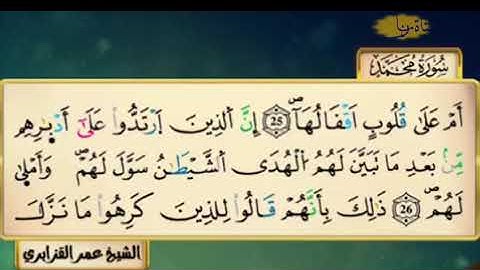 سُورَةُ مُحَمَّدٍ
أَمْ عَلَىٰ قُلُوبٍ اَقْفَالُهَآۖ 25 إِنَّ اَ۬لذِينَ اَ۪رْتَدُّوا۟ عَلَىٰٓ أَدْبَٰرِهِم
مِّنۢ بَعْدِ مَا تَبَيَّنَ لَهُمُ اُ۬لْهُدَى اَ۬لشَّيْطَٰنُ سَوَّلَ لَهُمْۖ وَأَمْلَىٰ
لَهُمْۖ 26 ذَٰلِكَ بِأَنَّهُمْ قَالُوا۟ لِلذِينَ كَرِهُوا۟ مَا نَزَّلَ
الشيخ عمر القزابري